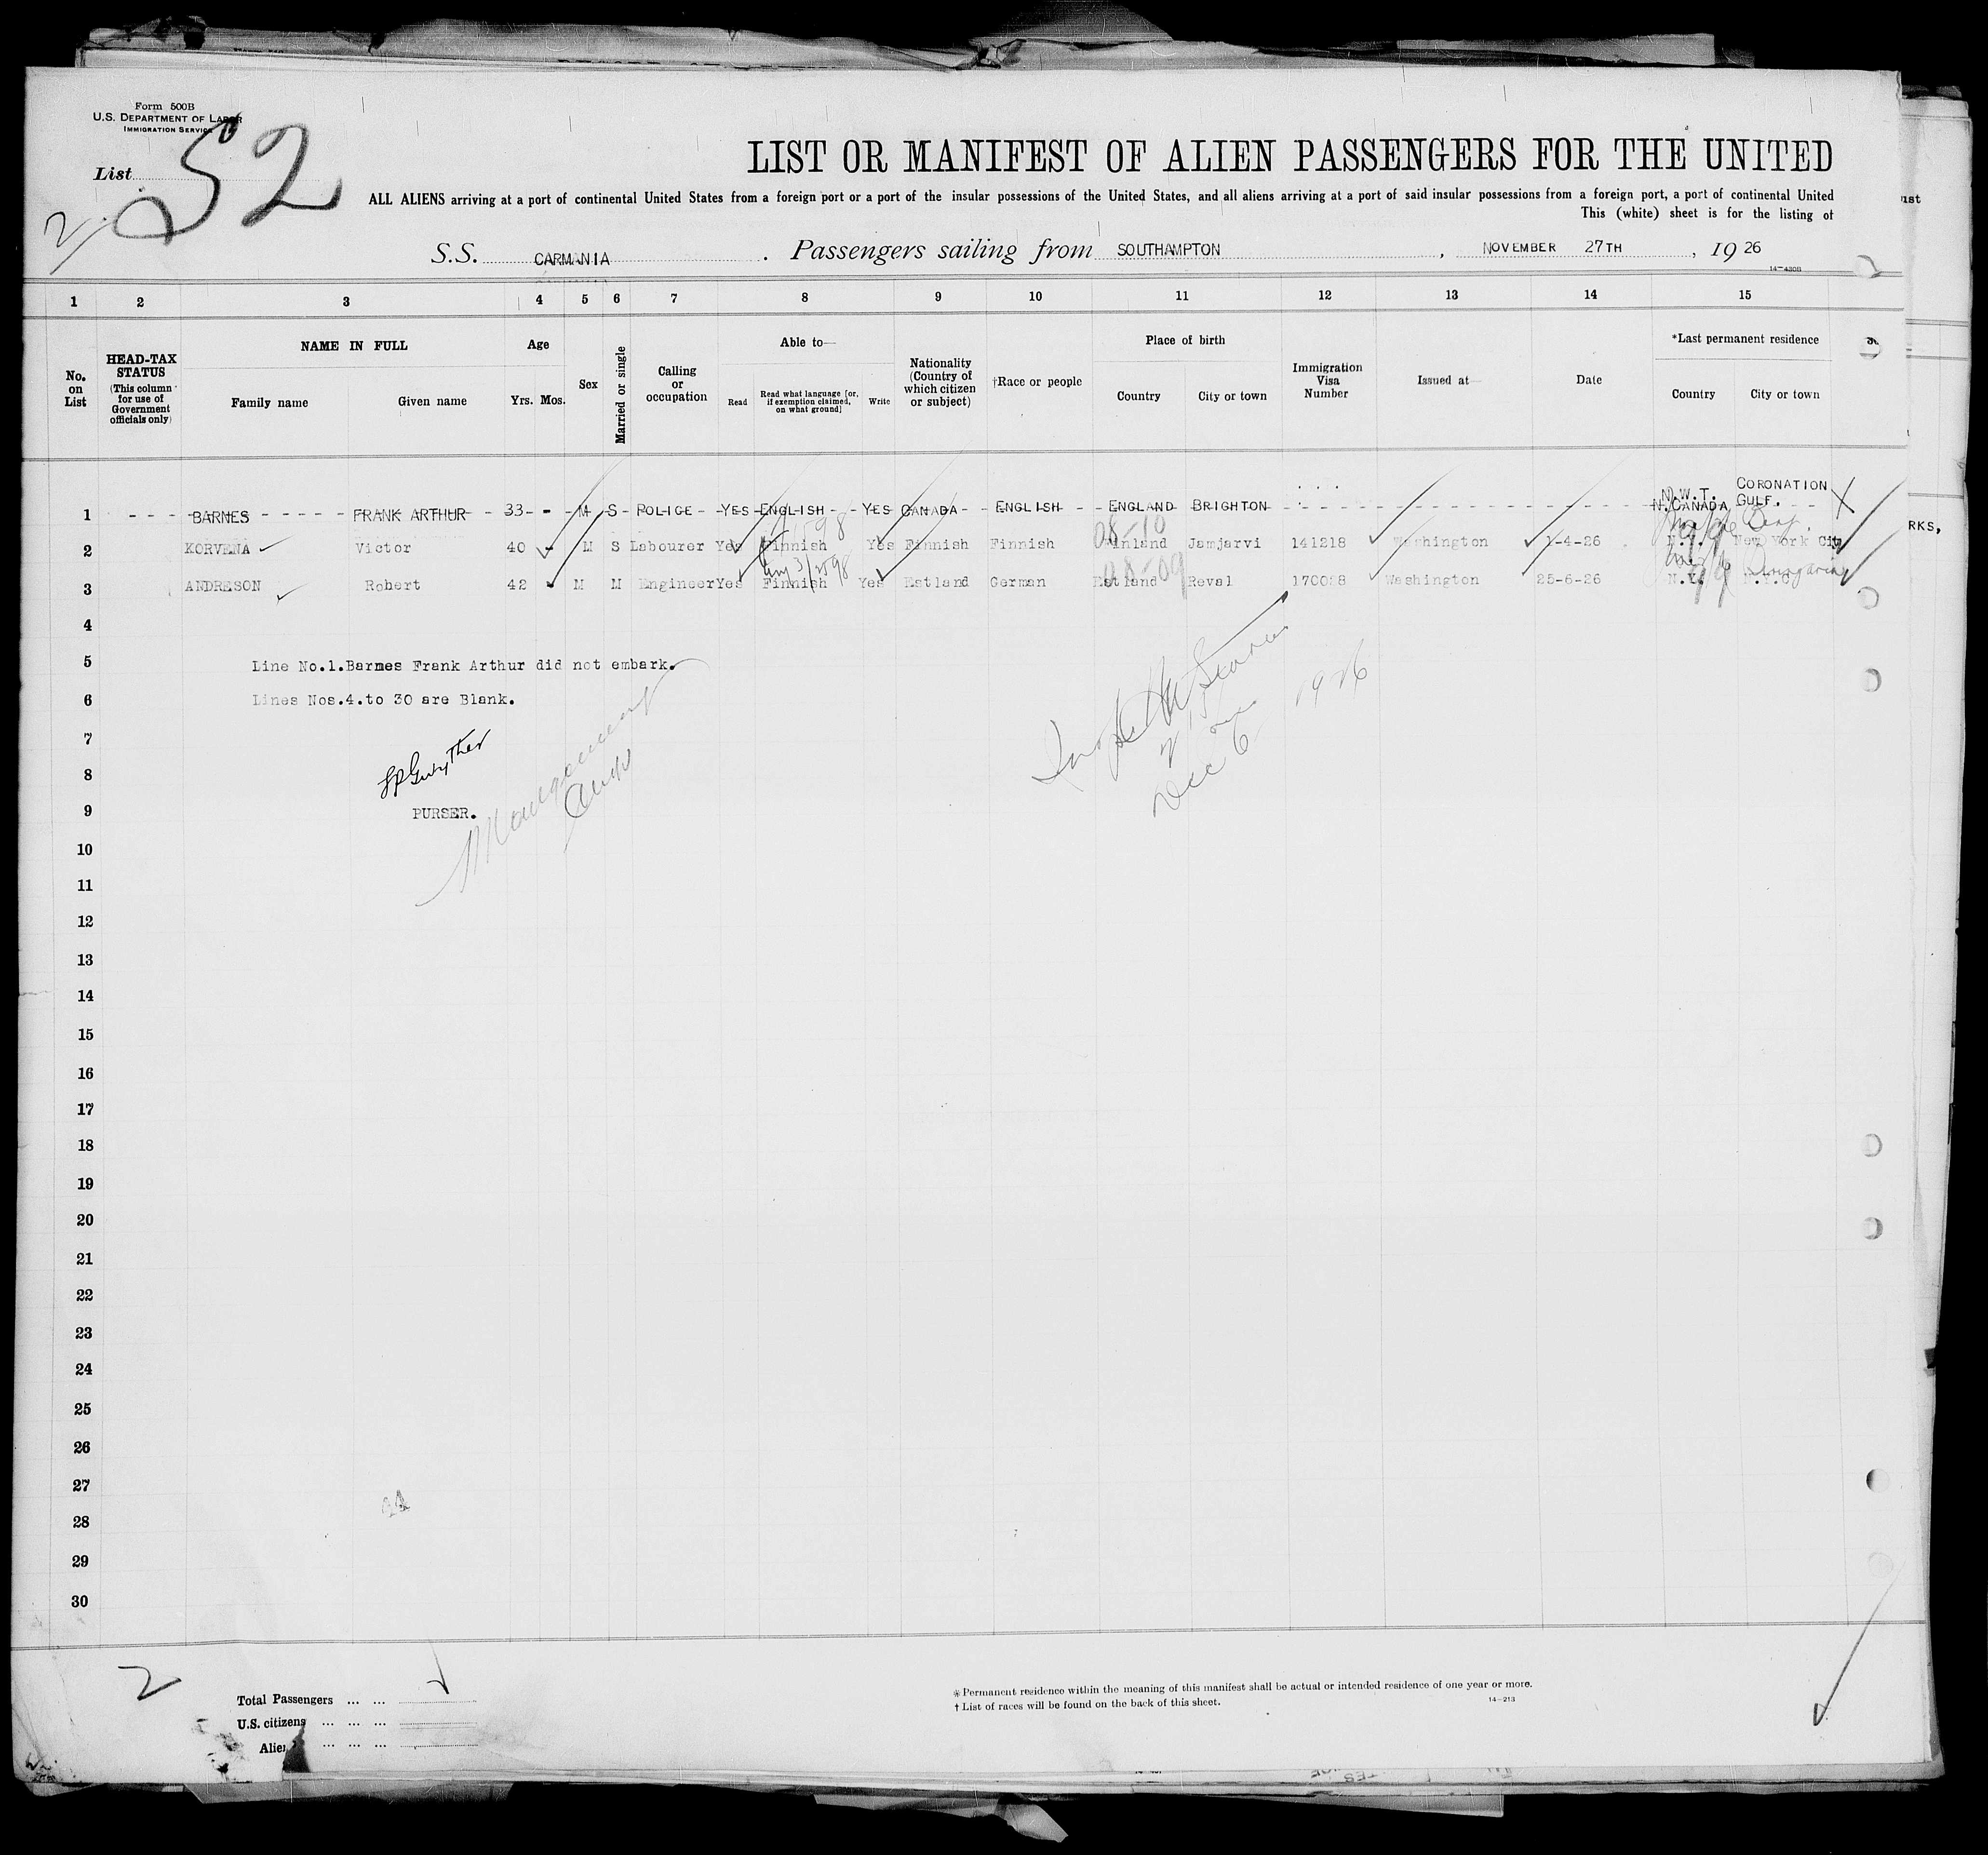 Form 500B
U.S. DEPARTMENT OF LABOR
IMMIGRATION SERVICE
List 52
2
LIST OR MANIFEST OF ALIEN PASSENGERS FOR THE UNITED
ALL ALIENS arriving at a port of continental United States from a foreign port or a port of the insular possessions of the United States, and all aliens arriving at a port of said insular possessions from a foreign port, a port of continental United
This (white) sheet is for the listing of
S.S. CARMANIA. Passengers sailing from SOUTHAMPTON, NOVEMBER 27TH, 19 26
14-430B
1 2 3 4 5 6 7 8 9 10 11 12 13 14 15
No. on List
HEAD-TAX STATUS (This column for use of Government officials only)
NAME IN FULL
Family name Given name
Age
Yrs. Mos.
Sex
Married or single
Calling or occupation
Able to—
Read Read what language [or, if exemption claimed, on what ground] Write
Nationality (Country of which citizen or subject)
†Race or people
Place of birth
Country City or town
Immigration Visa Number
Issued at—
Date
*Last permanent residence
Country City or town
1 BARNES FRANK ARTHUR 33 - M S POLICE YES ENGLISH YES CANADA ENGLISH ENGLAND BRIGHTON N.W.T. N.CANADA CORONATION GULF.
2 KORVENA Victor 40 - M S Labourer Yes Finnish Yes Finnish Finnish Finland Jamjarvi 141218 Washington 1-4-26 N.Y. New York City
08-10
3 ANDRESON Robert 42 - M M Engineer Yes Finnish Yes Estland German Estland Reval 170028 Washington 25-6-26 N.Y. N.Y.C.
4
5 Line No.1.Barnes Frank Arthur did not embark.
6 Lines Nos.4.to 30 are Blank.
7
8
9 PURSER.
Dec 6 1926
10
11
12
13
14
15
16
17
18
19
20
21
22
23
24
25
26
27
28
29
30
44
2
Total Passengers ... ...
U.S. citizens ... ... ...
Alien ... ... ...
* Permanent residence within the meaning of this manifest shall be actual or intended residence of one year or more.
† List of races will be found on the back of this sheet.
14-213
RKS,